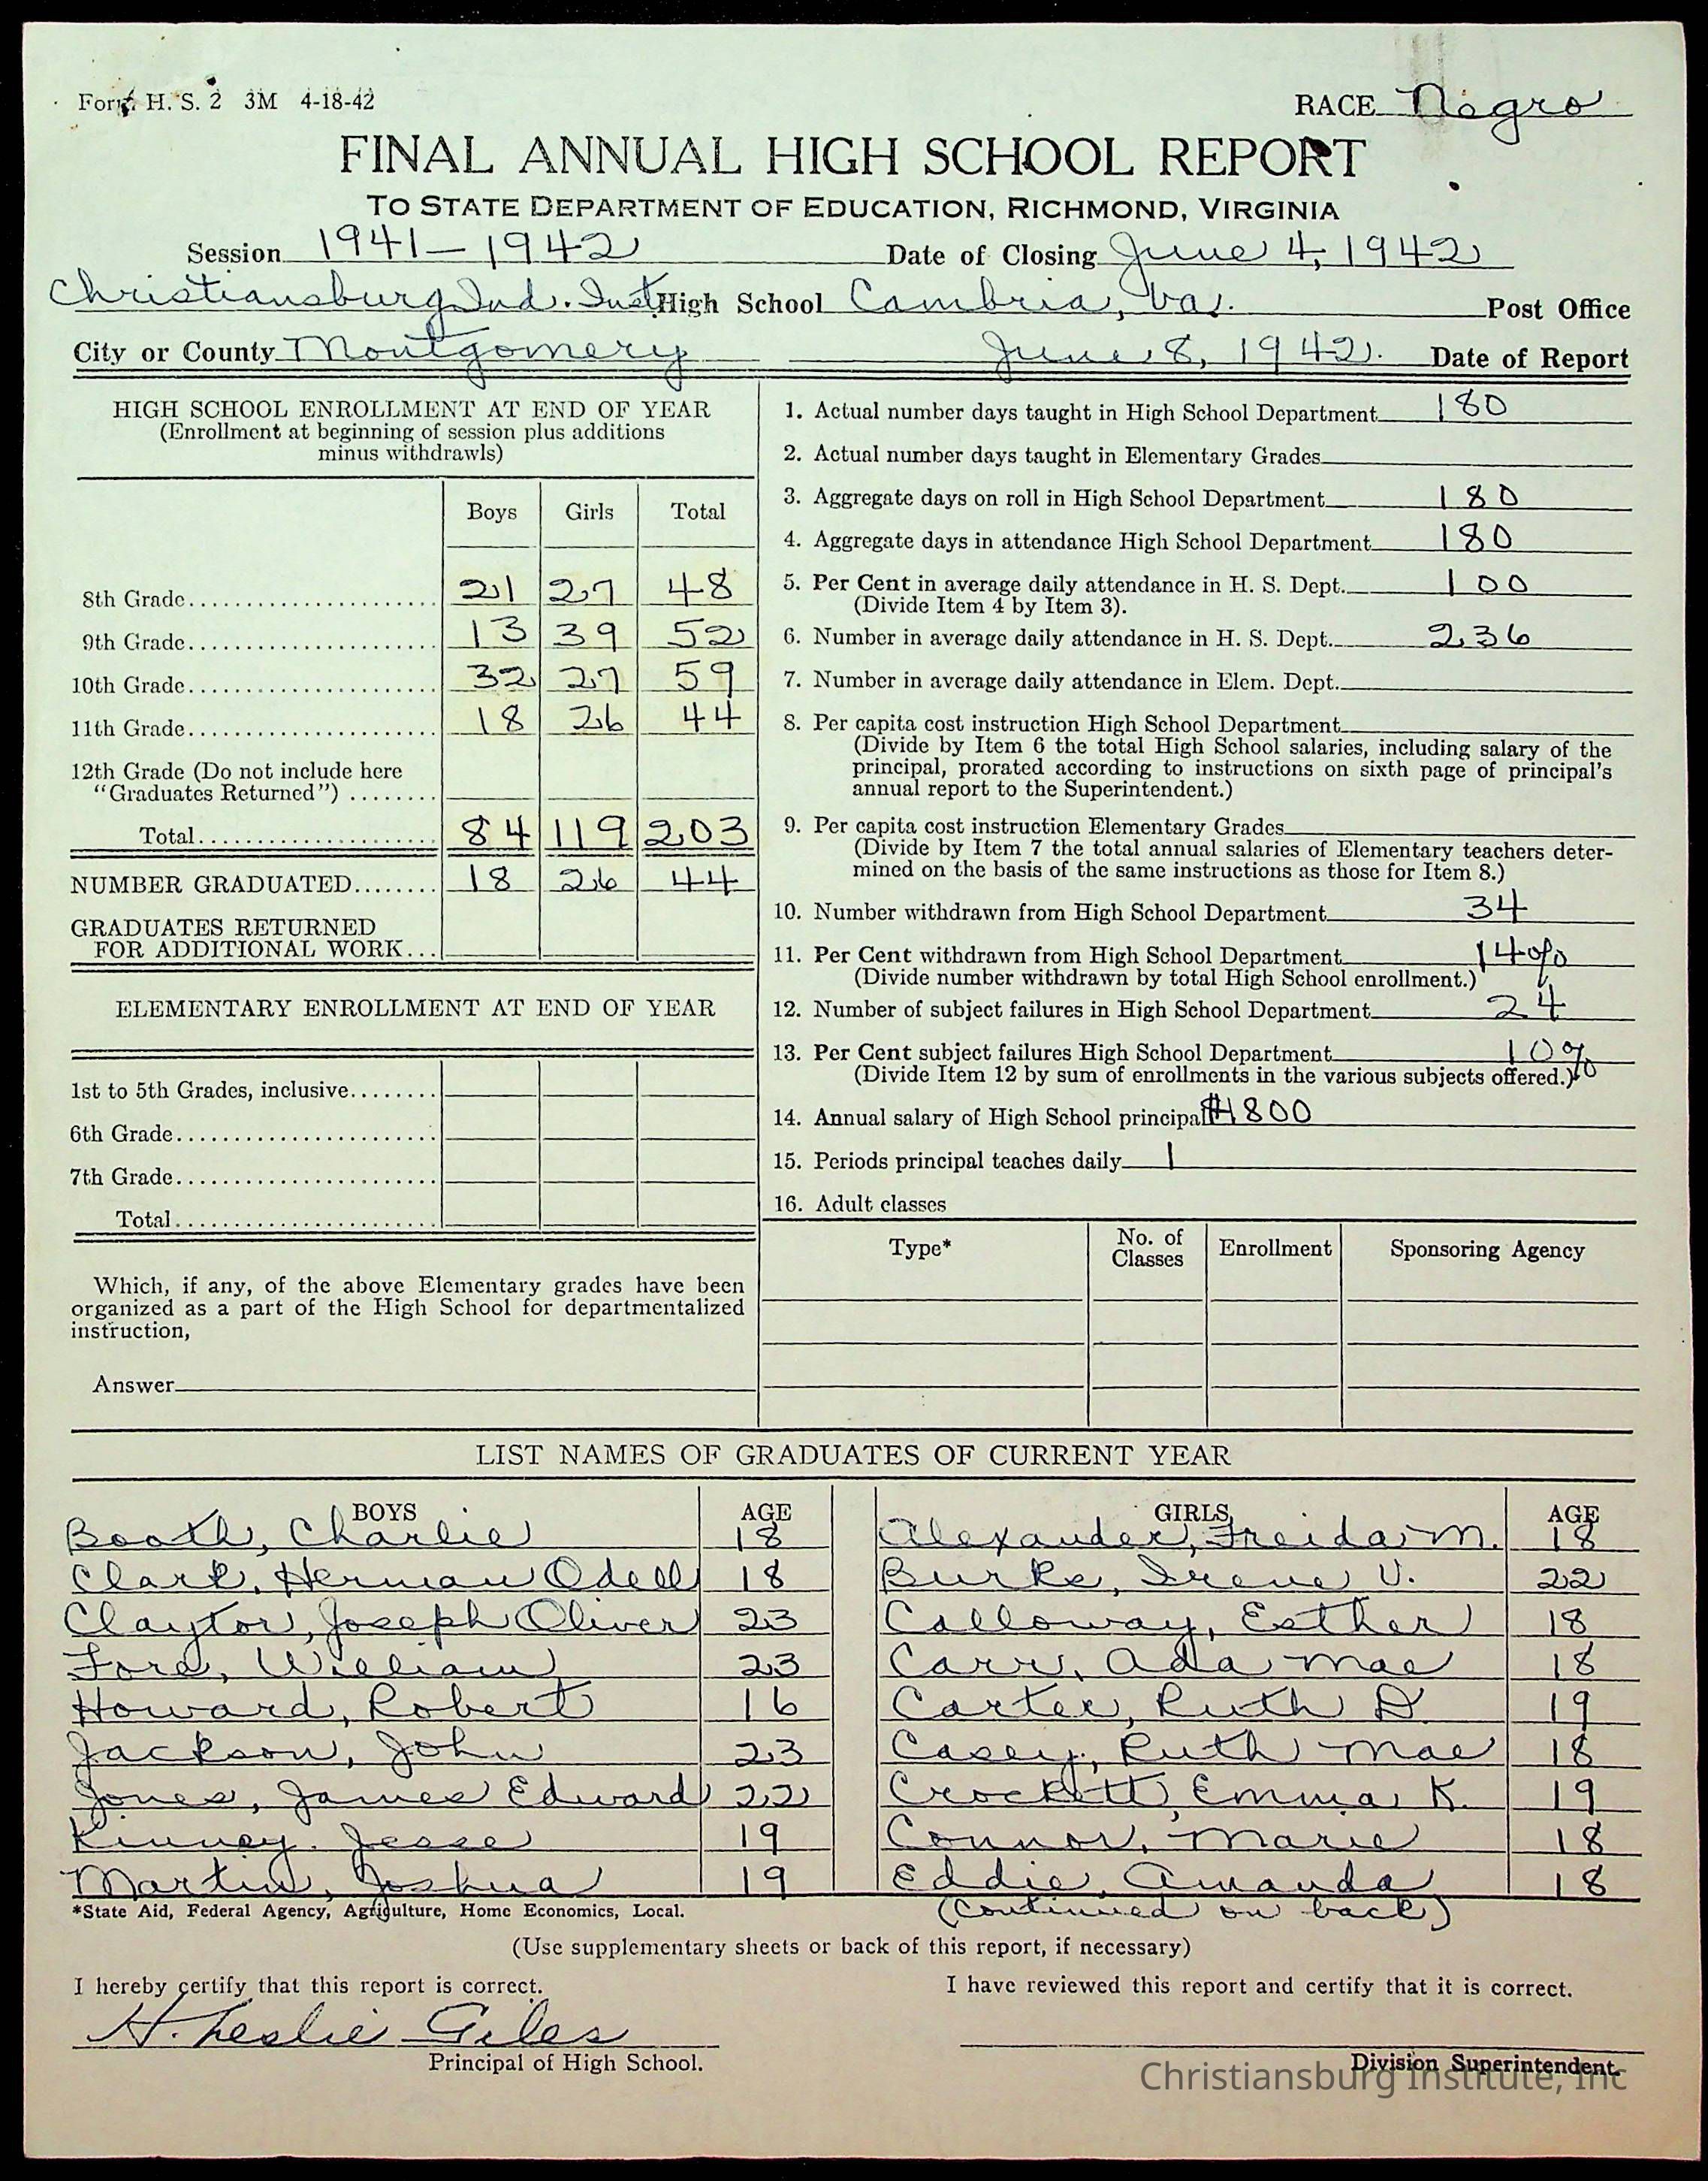 Form H. S. 2 3M 4-18-42
RACE Negro
FINAL ANNUAL HIGH SCHOOL REPORT
TO STATE DEPARTMENT OF EDUCATION, RICHMOND, VIRGINIA
Session 1941-1942 Date of Closing June 4, 1942
Christiansburg Ind. Inst. High School Cambria, Va. Post Office
City or County Montgomery June 8, 1942. Date of Report
HIGH SCHOOL ENROLLMENT AT END OF YEAR
(Enrollment at beginning of session plus additions
minus withdrawls)
Boys Girls Total
8th Grade 21 27 48
9th Grade 13 39 52
10th Grade 32 27 59
11th Grade 18 26 44
12th Grade (Do not include here
"Graduates Returned")
Total 84 119 203
NUMBER GRADUATED 18 26 44
GRADUATES RETURNED
FOR ADDITIONAL WORK
ELEMENTARY ENROLLMENT AT END OF YEAR
1st to 5th Grades, inclusive
6th Grade
7th Grade
Total
Which, if any, of the above Elementary grades have been
organized as a part of the High School for departmentalized
instruction,
Answer
1. Actual number days taught in High School Department 180
2. Actual number days taught in Elementary Grades
3. Aggregate days on roll in High School Department 180
4. Aggregate days in attendance High School Department 180
5. Per Cent in average daily attendance in H. S. Dept. 100
(Divide Item 4 by Item 3).
6. Number in average daily attendance in H. S. Dept. 236
7. Number in average daily attendance in Elem. Dept.
8. Per capita cost instruction High School Department
(Divide by Item 6 the total High School salaries, including salary of the
principal, prorated according to instructions on sixth page of principal's
annual report to the Superintendent.)
9. Per capita cost instruction Elementary Grades
(Divide by Item 7 the total annual salaries of Elementary teachers deter-
mined on the basis of the same instructions as those for Item 8.)
10. Number withdrawn from High School Department 34
11. Per Cent withdrawn from High School Department 14%
(Divide number withdrawn by total High School enrollment.)
12. Number of subject failures in High School Department 24
13. Per Cent subject failures High School Department 10%
(Divide Item 12 by sum of enrollments in the various subjects offered.)
14. Annual salary of High School principal $1800
15. Periods principal teaches daily 1
16. Adult classes
Type* No. of Classes Enrollment Sponsoring Agency
LIST NAMES OF GRADUATES OF CURRENT YEAR
BOYS AGE GIRLS AGE
Booth, Charlie 18 Alexander, Freida M. 18
Clark, Herman Odell 18 Burke, Irene V. 22
Claytor, Joseph Oliver 23 Calloway, Esther 18
Ford, William 23 Carr, Ada Mae 18
Howard, Robert 16 Carter, Ruth D. 19
Jackson, John 23 Casey, Ruth Mae 18
Jones, James Edward 22 Crockett, Emma K. 19
Kinney, Jesse 19 Connor, Marie 18
Martin, Joshua 19 Eddie, Amanda 18
*State Aid, Federal Agency, Agriculture, Home Economics, Local. (Continued on back)
(Use supplementary sheets or back of this report, if necessary)
I hereby certify that this report is correct. I have reviewed this report and certify that it is correct.
H. Leslie Giles
Principal of High School. Division Superintendent.
Christiansburg Institute, Inc